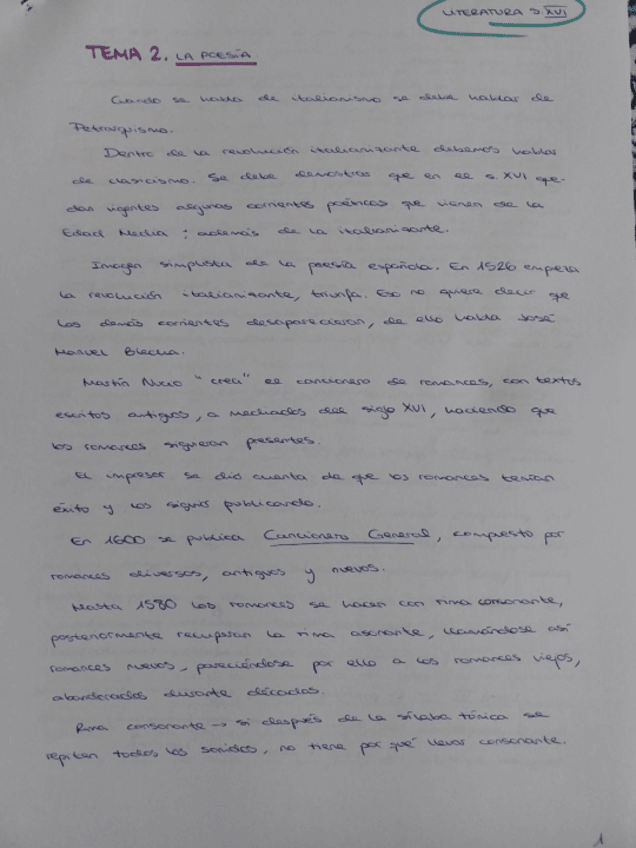 LITERATURA S. XVI
TEMA 2. LA POESÍA.
Cuando se habla de italianismo se debe hablar de
Petrarquismo.
Dentro de la revolución italianizante debemos hablar
de clasicismo. Se debe demostrar que en el s. XVI que-
dan vigentes algunas corrientes poéticas que vienen de la
Edad Media; además de la italianizante.
Imagen simplista de la poesía española. En 1526 empieza
la revolución italianizante, triunfa. Eso no quiere decir que
las demás corrientes desaparecieran, de ello habla José
Manuel Blecua.
Martín Nucio "crea" el cancionero de romances, con textos
escritos antiguos, a mediados del siglo XVI, haciendo que
los romances siguieran presentes.
El impresor se dio cuenta de que los romances tenían
éxito y los siguió publicando.
En 1600 se publica Cancionero General, compuesto por
romances diversos, antiguos y nuevos.
Hasta 1580 los romances se hacen con rima consonante,
posteriormente recuperan la rima asonante, llamándose así
romances nuevos, pareciéndose por ello a los romances viejos,
abanderados durante décadas.
Rima consonante → si después de la sílaba tónica se
repiten todos los sonidos, no tiene por qué llevar consonante.
1